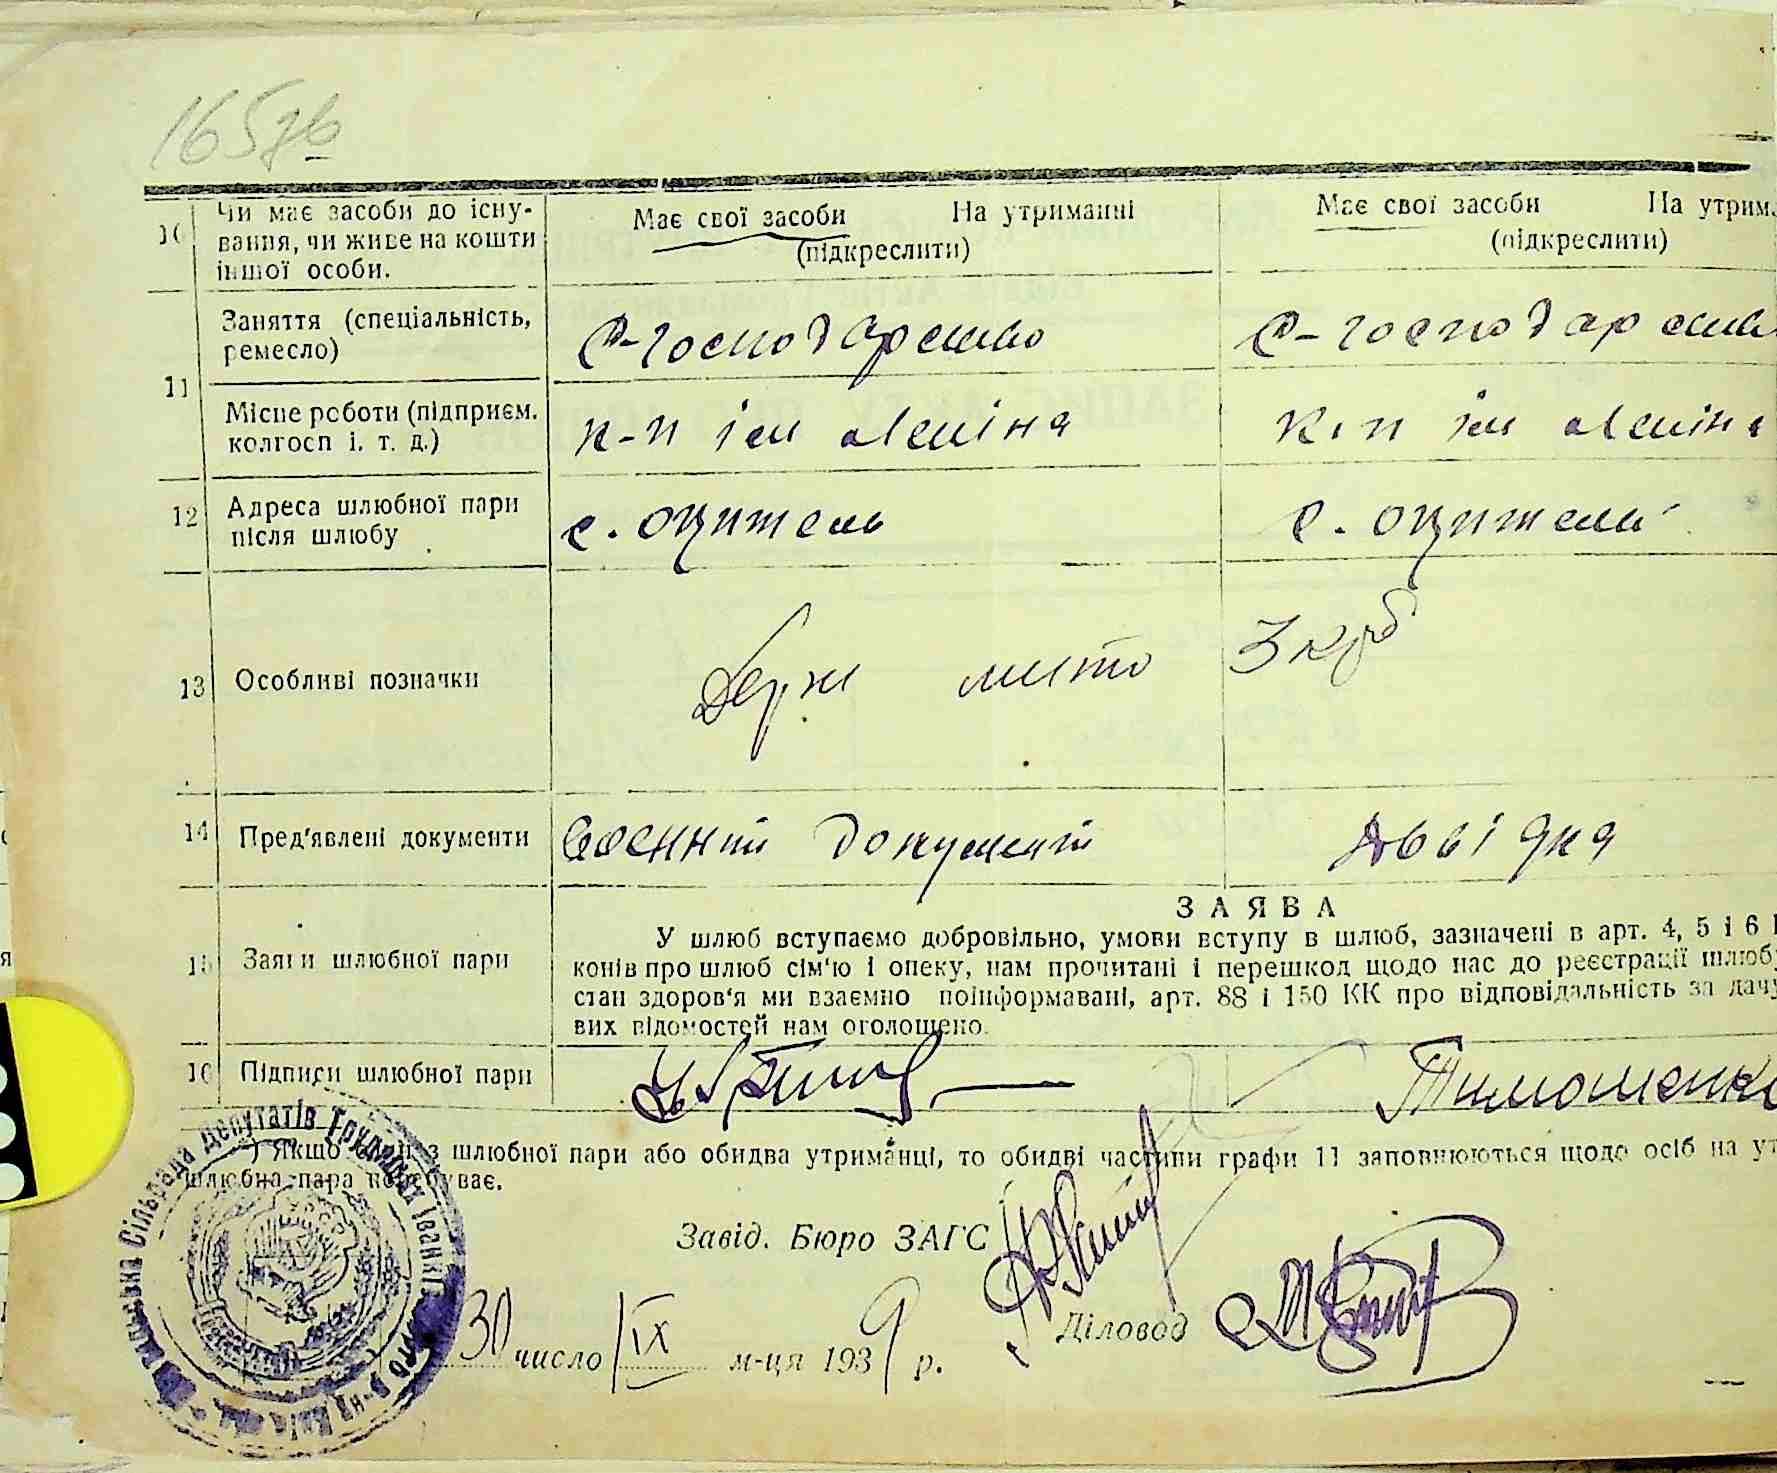 165зв
10 Чи має засоби до існу- Має свої засоби На утриманні Має свої засоби На утрим.
вання, чи живе на кошти (підкреслити) (підкреслити)
іншої особи.
11 Заняття (спеціальність, С-господарство С-господарство
ремесло)
Місце роботи (підприєм. к-п ім Леніна к-п ім Леніна
колгосп і. т. д.)
12 Адреса шлюбної пари с. Оцитель с. Оцитель
після шлюбу
13 Особливі позначки Держ мито 3 крб
14 Пред'явлені документи военний документ довідка
ЗАЯВА
15 Заяви шлюбної пари У шлюб вступаємо добровільно, умови вступу в шлюб, зазначені в арт. 4, 5 і 6
конів про шлюб сім'ю і опеку, нам прочитані і перешкод щодо нас до реєстрації шлюбу
стан здоров'я ми взаємно поінформавані, арт. 88 і 150 КК про відповідальність за дачу
вих відомостей нам оголошено.
16 Підписи шлюбної пари Тимошенко
*) Якщо один з шлюбної пари або обидва утриманці, то обидві частини графи 11 заповнюються щодо осіб на ут
шлюбна пара перебуває.
Завід. Бюро ЗАГС
Діловод
30 число IX м-ця 1939 р.
Сільрада Депутатів Трудящих Іванківського р-на